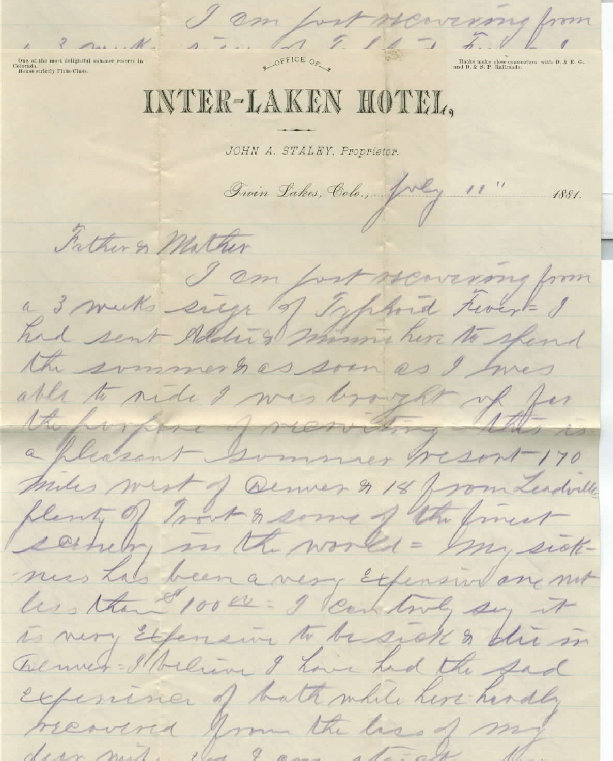 I am just recovering from
a 3 weeks siege of Typhoid Fever = I
One of the most delightful summer resorts in
Colorado.
House strictly First-Class.
OFFICE OF
Hacks make close connection with D. & R. G.
and D. & S. P. Railroads.
INTER-LAKEN HOTEL,
JOHN A. STALEY, Proprietor.
Twin Lakes, Colo., July 11" 1881.
Father & Mother
I am just recovering from
a 3 weeks siege of Typhoid Fever = I
had sent Addie & Minnie here to spend
the summer & as soon as I was
able to ride I was brought up for
the purpose of recruiting this is
a pleasant summer resort 170
miles west of Denver & 18 from Leadville
plenty of Trout & some of the finest
scenery in the world = My sick-
ness has been a very Expensive one not
less than $100 00 = I can truly say it
is very Expensive to be sick & die in
Denver = I believe I have had the sad
Experience of both while here hardly
recovered from the loss of my
dear wife